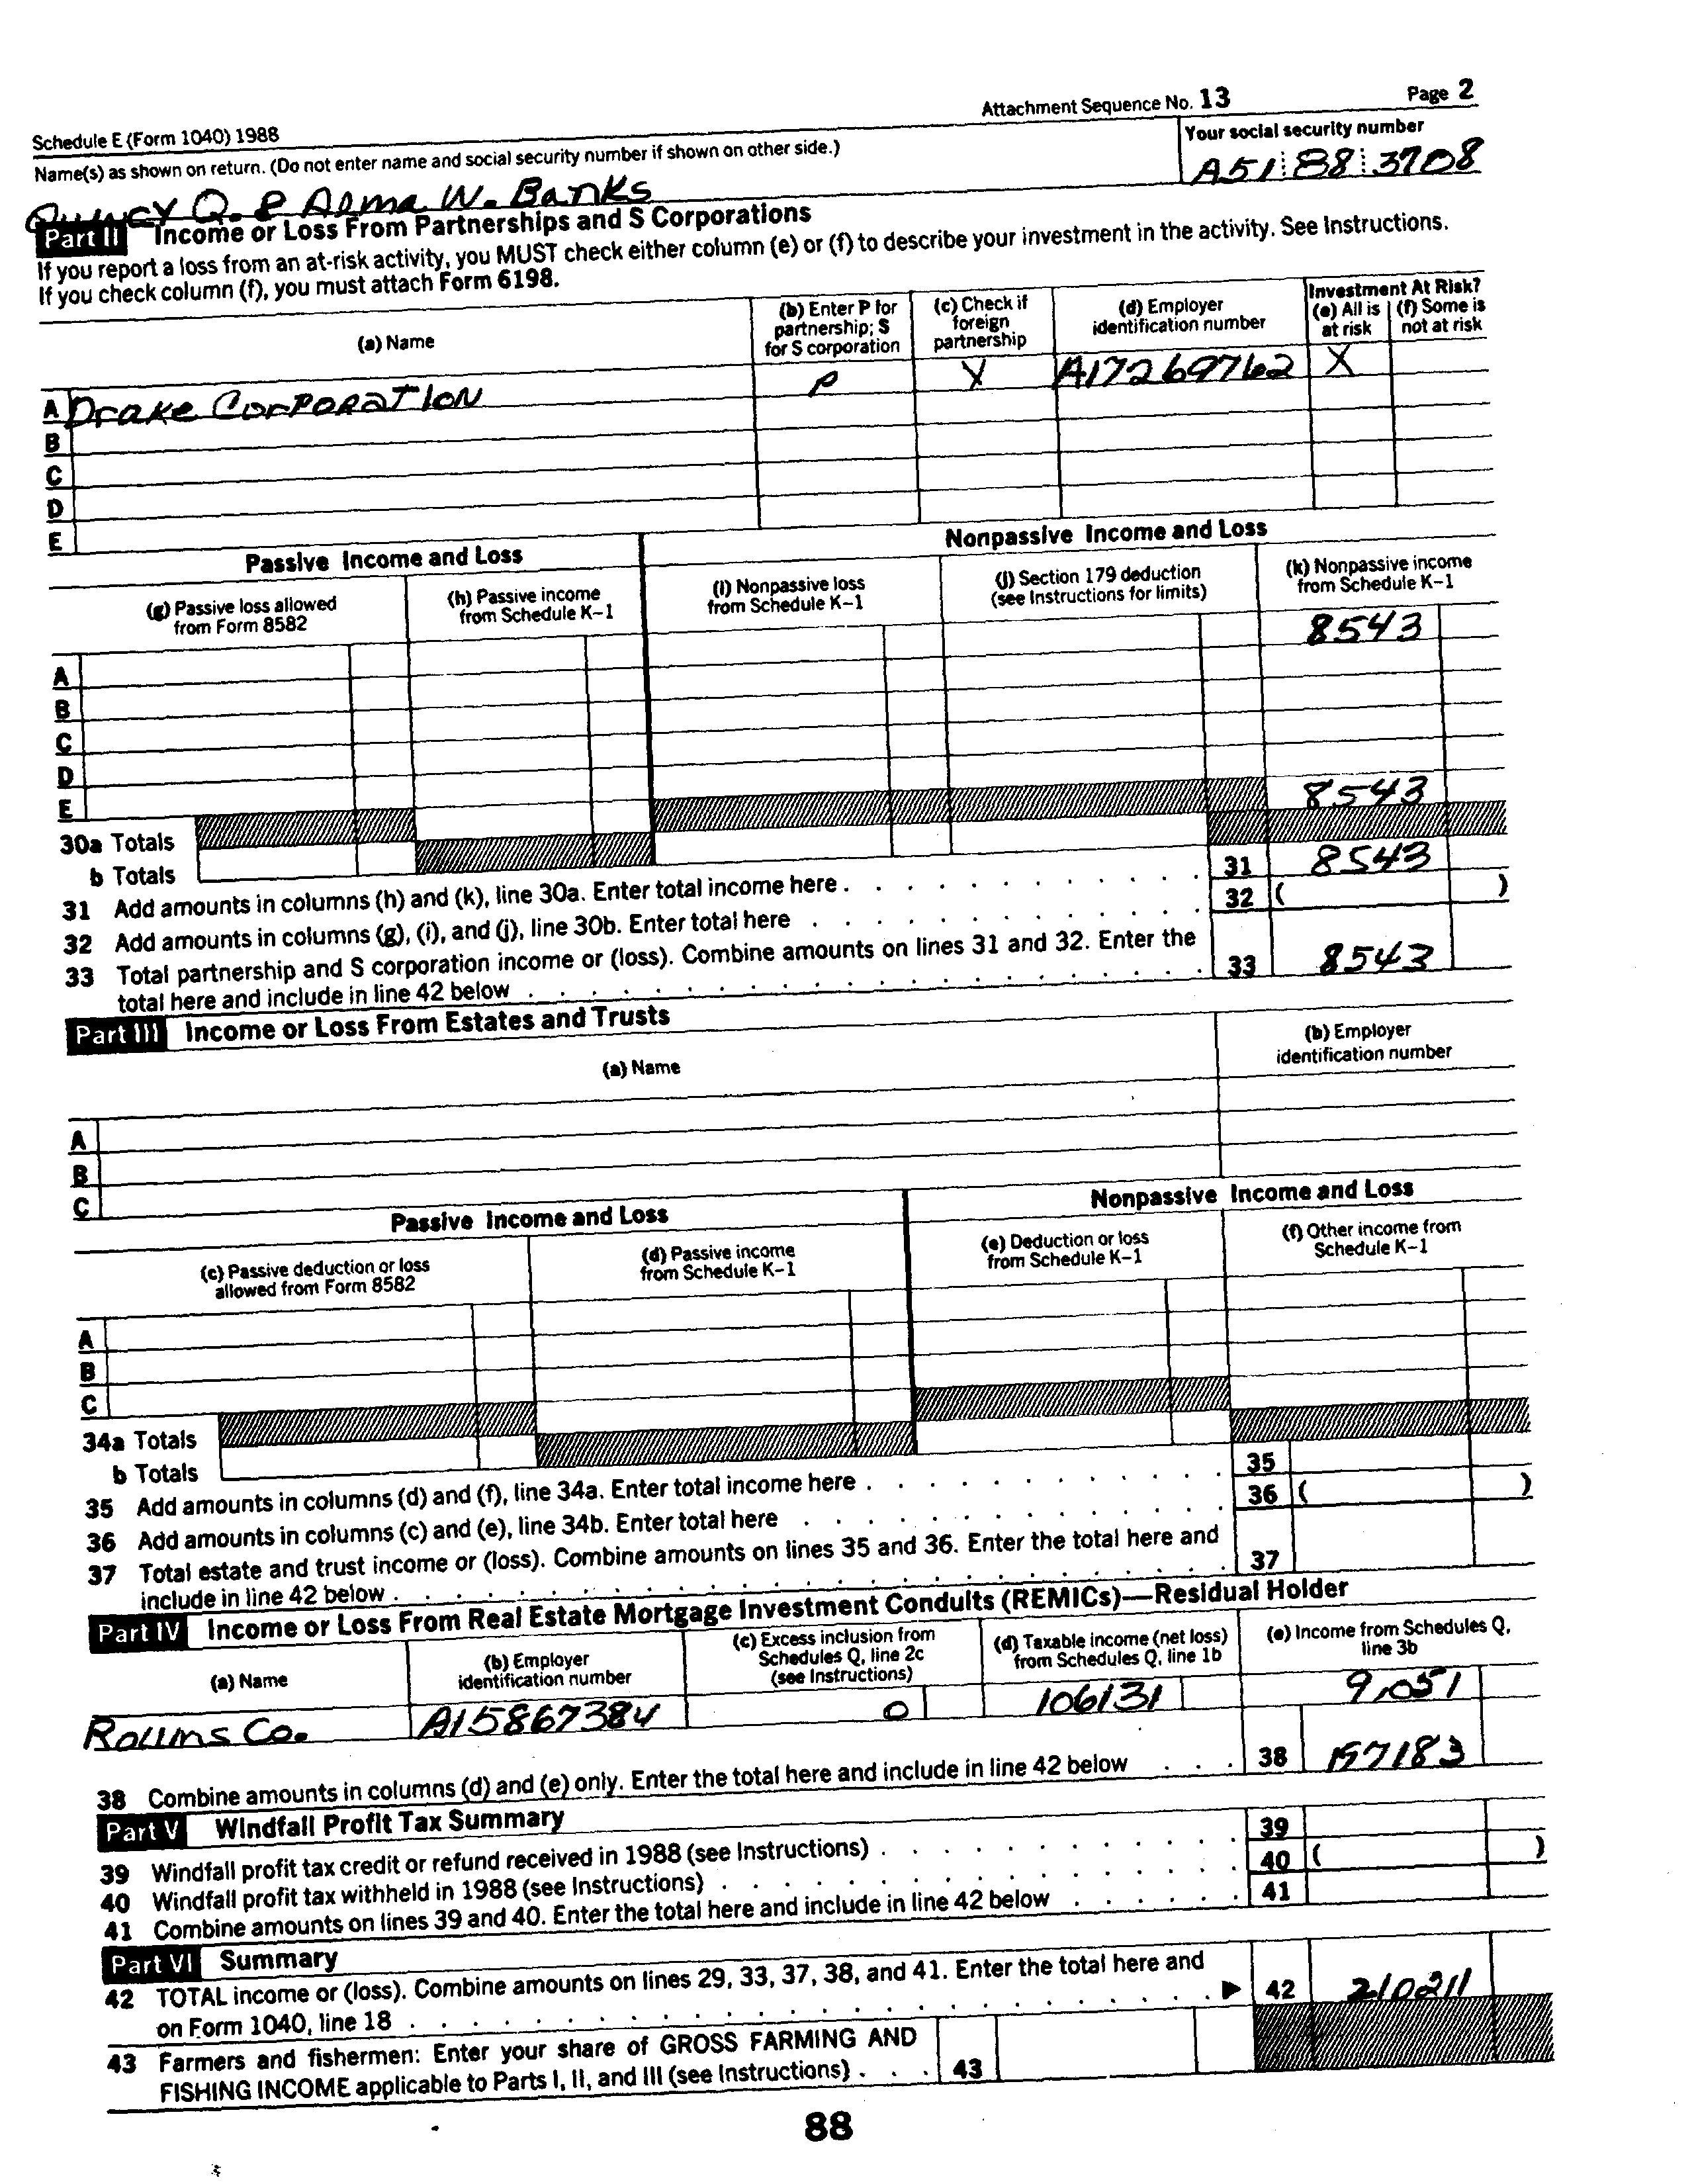 Schedule E (Form 1040) 1988 Attachment Sequence No. 13 Page 2
Name(s) as shown on return. (Do not enter name and social security number if shown on other side.) Your social security number
Quincy Q. & Alma W. Banks A51 88 3708
Part II Income or Loss From Partnerships and S Corporations
If you report a loss from an at-risk activity, you MUST check either column (e) or (f) to describe your investment in the activity. See Instructions.
If you check column (f), you must attach Form 6198.
(a) Name (b) Enter P for partnership; S for S corporation (c) Check if foreign partnership (d) Employer identification number Investment At Risk? (e) All is at risk (f) Some is not at risk
A Drake Corporation P X A17269762 X
B
C
D
E
Passive Income and Loss Nonpassive Income and Loss
(g) Passive loss allowed from Form 8582 (h) Passive income from Schedule K-1 (i) Nonpassive loss from Schedule K-1 (j) Section 179 deduction (see Instructions for limits) (k) Nonpassive income from Schedule K-1
A 8543
B
C
D
E
30a Totals 8543
b Totals
31 Add amounts in columns (h) and (k), line 30a. Enter total income here 31 8543
32 Add amounts in columns (g), (i), and (j), line 30b. Enter total here 32 ( )
33 Total partnership and S corporation income or (loss). Combine amounts on lines 31 and 32. Enter the
total here and include in line 42 below 33 8543
Part III Income or Loss From Estates and Trusts
(a) Name (b) Employer identification number
A
B
C
Passive Income and Loss Nonpassive Income and Loss
(c) Passive deduction or loss allowed from Form 8582 (d) Passive income from Schedule K-1 (e) Deduction or loss from Schedule K-1 (f) Other income from Schedule K-1
A
B
C
34a Totals
b Totals
35 Add amounts in columns (d) and (f), line 34a. Enter total income here 35
36 Add amounts in columns (c) and (e), line 34b. Enter total here 36 ( )
37 Total estate and trust income or (loss). Combine amounts on lines 35 and 36. Enter the total here and
include in line 42 below 37
Part IV Income or Loss From Real Estate Mortgage Investment Conduits (REMICs)—Residual Holder
(a) Name (b) Employer identification number (c) Excess inclusion from Schedules Q, line 2c (see Instructions) (d) Taxable income (net loss) from Schedules Q, line 1b (e) Income from Schedules Q, line 3b
Rollins Co. A15867384 0 106131 9,051
38 Combine amounts in columns (d) and (e) only. Enter the total here and include in line 42 below 38
Part V Windfall Profit Tax Summary
39 Windfall profit tax credit or refund received in 1988 (see Instructions) 39
40 Windfall profit tax withheld in 1988 (see Instructions) 40 ( )
41 Combine amounts on lines 39 and 40. Enter the total here and include in line 42 below 41
Part VI Summary
42 TOTAL income or (loss). Combine amounts on lines 29, 33, 37, 38, and 41. Enter the total here and
on Form 1040, line 18 ▶ 42 210211
43 Farmers and fishermen: Enter your share of GROSS FARMING AND
FISHING INCOME applicable to Parts I, II, and III (see Instructions) 43
88